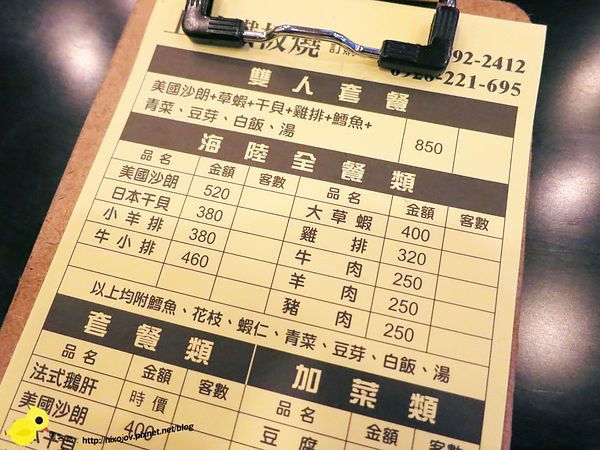 鐵板燒
92-2412
0926-221-695
雙人套餐
美國沙朗+草蝦+干貝+雞排+鱈魚+
青菜、豆芽、白飯、湯 850
海陸全餐類
品名 金額 客數 品名 金額 客數
美國沙朗 520 大草蝦 400
日本干貝 380 雞排 320
小羊排 380 牛肉 250
牛小排 460 羊肉 250
豬肉 250
以上均附鱈魚、花枝、蝦仁、青菜、豆芽、白飯、湯
套餐類 加菜類
品名 金額 客數 品名 金額 客數
法式鵝肝 時價 豆腐
美國沙朗 400
干貝
http://nixojov.pixnet.net/blog